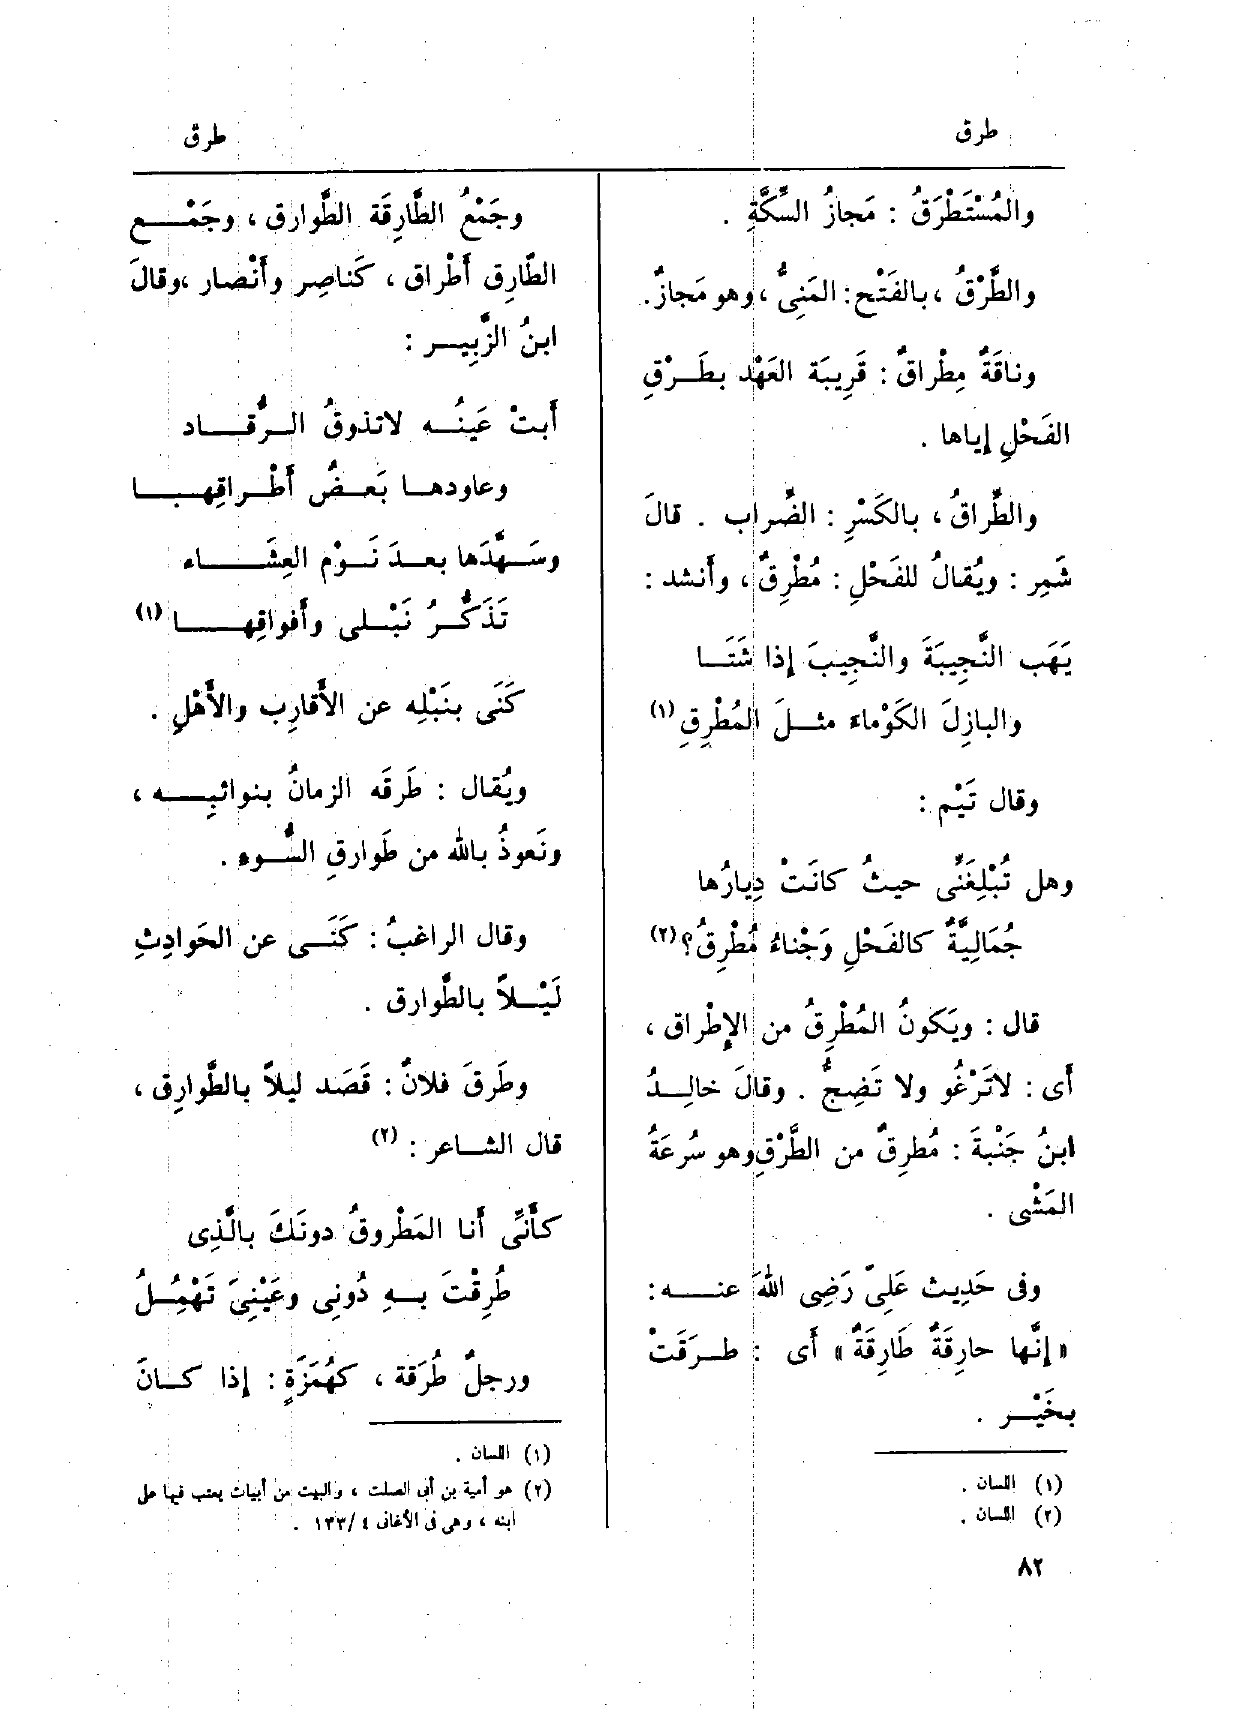 طرق
طرق
والمُسْتَطْرَقُ : مَجازُ السِّكَّةِ .
والطَّرْقُ ، بالفَتْح : المَنِىُّ ، وهو مَجازٌ .
وناقَةٌ مِطْراقٌ : قَرِيبَة العَهْد بطَـرْقِ
الفَحْلِ إياها .
والطِّراقُ ، بالكَسْرِ : الضِّراب . قالَ
شَمِر : ويُقالُ للفَحْلِ : مُطْرِقٌ ، وأَنشد :
يَهَب النَّجِيبَةَ والنَّجِيبَ إذا شَتَـا
والبازِلَ الكَوْماءَ مثـلَ المُطْرِقِ (١)
وقال تَيْم :
وهل تُبْلِغَنِّى حيثُ كانَتْ دِيارُها
جُمَالِيَّةٌ كالفَحْلِ وَجْناءُ مُطْرِقُ؟ (٢)
قال : ويَكونُ المُطْرِقُ من الإِطْراق ،
أَى : لاتَرْغُو ولا تَضِجُّ . وقالَ خالِـدُ
ابنُ جَنْبةَ : مُطرِقٌ من الطَّرْقِ وهو سُرعَةُ
المَشْى .
وفى حَدِيث عَلِىّ رَضِى اللهُ عنـه :
« إنَّها حارِقَةٌ طَارِقَةٌ » أَى : طـرَقَتْ
بخَيْـر .
(١) اللسان .
(٢) اللسان .
٨٢
وجَمْعُ الطَّارِقَة الطَّوارق ، وجَمْـع
الطّارِق أَطْراق ، كَناصِر وأَنْصار ، وقالَ
ابنُ الزَّبِيـر :
أَبتْ عَينُـه لاتذوقُ الـرُّقـاد
وعاودهـا بَعـضُ أَطْـراقِهـا
وسَـهَّدَها بعـدَ نَـوْم العِشَـاء
تَذَكُّـرُ نَبْـلى وأَفواقِهـا (١)
كَنَى بنَبْلِه عن الأَقارِب والأَهْلِ .
ويُقال : طَرقَه الزمانُ بنوائبِـه ،
ونَعوذُ بالله من طَوارقِ السُّـوءِ .
وقال الراغبُ : كَنَـى عن الحَوادِثِ
لَيْـلاً بالطَّوارق .
وطَرقَ فلانٌ : قَصَد ليلاً بالطَّوارِق ،
قال الشـاعر : (٢)
كأَنِّى أَنا المَطْروقُ دونَكَ بالَّذِى
طُرِقْتَ بـهِ دُونِى وعَيْنِىَ تَهْمُـلُ
ورجلٌ طُرَقة ، كهُمَزَةٍ : إذا كـانَ
(١) اللسان .
(٢) هو أمية بن أبى الصلت ، والبيت من أبيات يعتب فيها على
ابنه ، وهى فى الأغانى ٤ /١٣٣ .